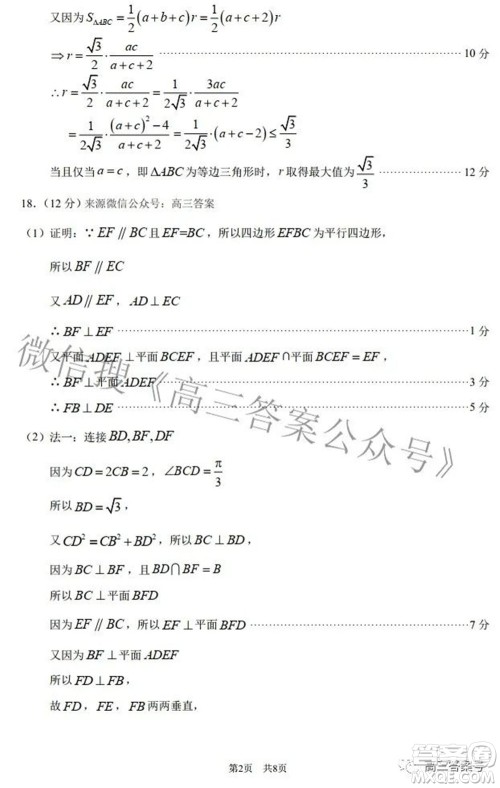 又因为 S△ABC = 1/2 (a+b+c)r = 1/2 (a+c+2)r
⇒ r = √3/2 · ac/(a+c+2) ………… 10 分
∴ r = √3/2 · ac/(a+c+2) = 1/(2√3) · 3ac/(a+c+2)
= 1/(2√3) · ((a+c)²−4)/(a+c+2) = 1/(2√3) · (a+c−2) ≤ √3/3
当且仅当 a=c，即 ΔABC 为等边三角形时，r 取得最大值为 √3/3 ………… 12 分
18.（12 分）来源微信公众号：高三答案
（1）证明：∵ EF // BC 且 EF=BC，所以四边形 EFBC 为平行四边形，
所以 BF // EC
又 AD // EF，AD⊥
∴ BF ⊥ EF ………… 1 分
又平面 ADEF ⊥ 平面 BCEF，且平面 ADEF ∩ 平面 BCEF = EF，
∴ BF ⊥ 平面 ADEF ………… 3 分
∴ FB ⊥ DE ………… 5 分
（2）法一：连接 BD, BF, DF
因为 CD = 2CB = 2，∠BCD = π/3
所以 BD = √3，
又 CD² = CB² + BD²，所以 BC ⊥ BD，
因为 BC ⊥ BF，且 BD∩BF = B
所以 BC ⊥ 平面 BFD
因为 EF // BC，所以 EF ⊥ 平面 BFD ………… 7 分
又因为 BF ⊥ 平面 ADEF
所以 FD ⊥ FB，
故 FD，FE，FB 两两垂直，
微信搜《高三答案公众号》
第2页 共8页
高三答案号